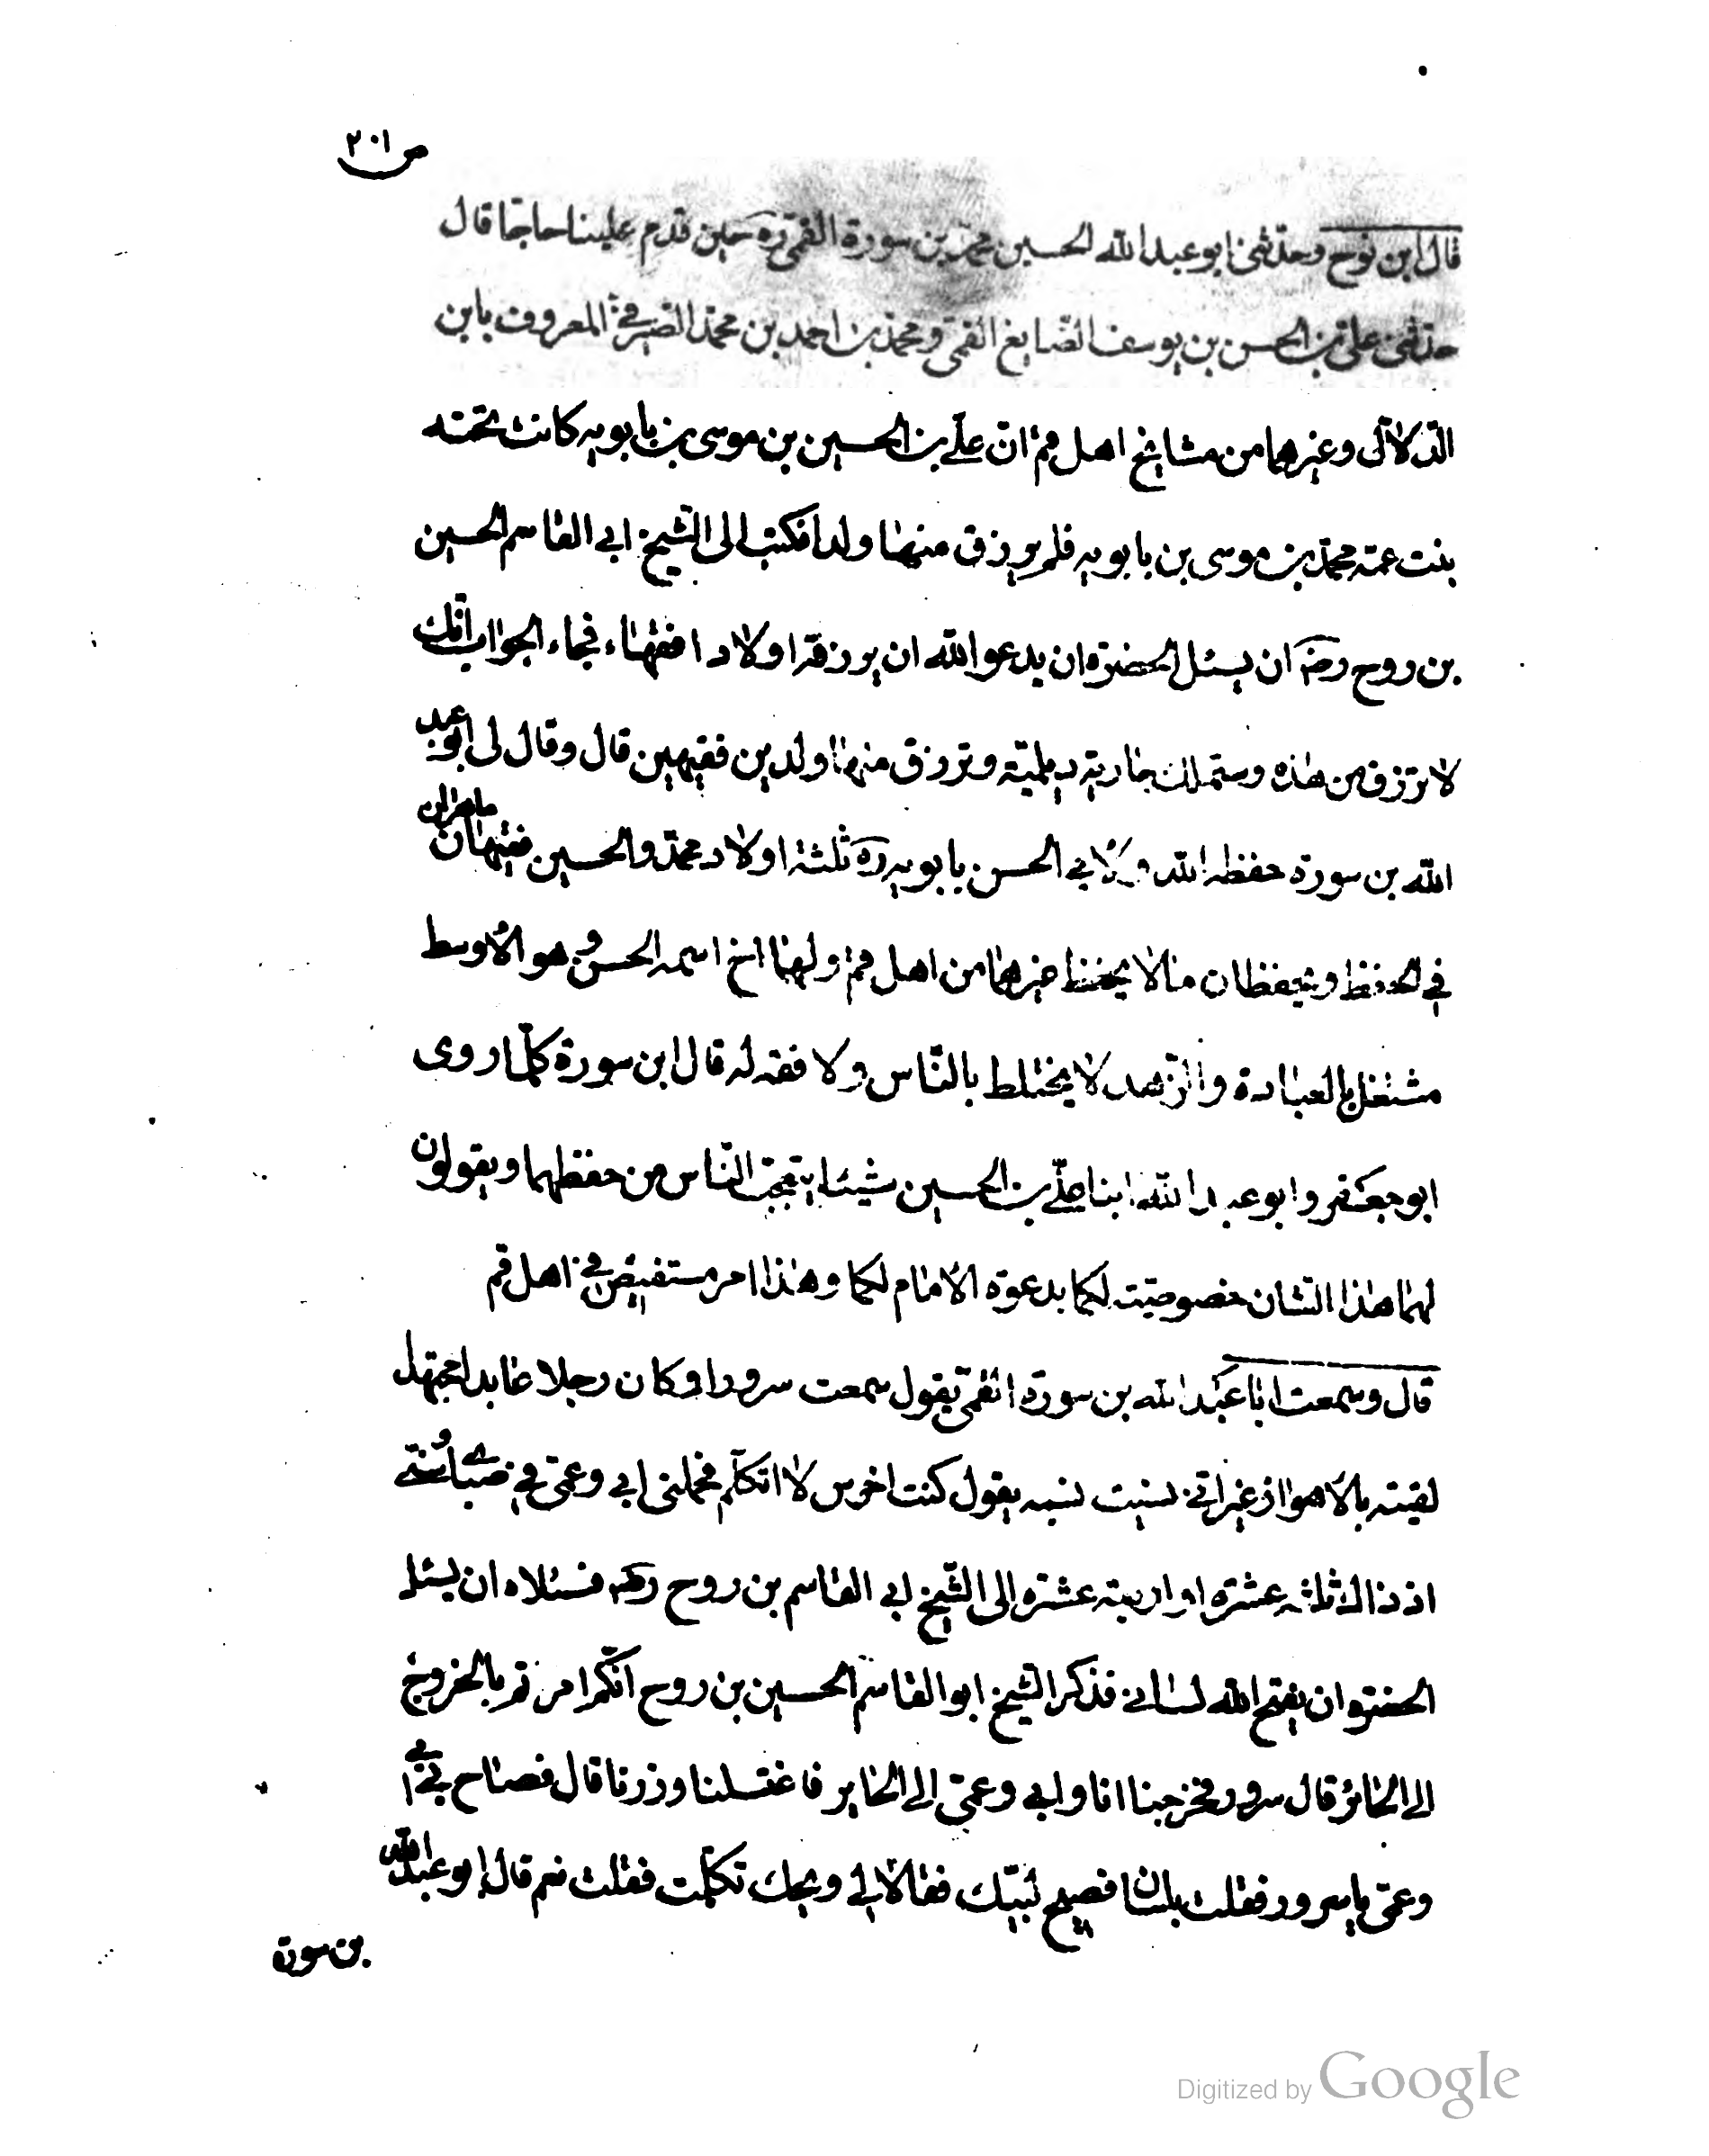 ص ٢٠١
قال ابن نوح وحدثنى ابو عبد الله الحسين محمد بن سورة القمى ره حين قدم علينا حاجا قال
حدثنى على بن الحسن بن يوسف الصّايغ القمى ومحمد بن احمد بن محمد الصيرفى المعروف بابن
الدلال وغيرهما من مشايخ اهل قم ان على بن الحسين بن موسى بن بابويه كانت تحته
بنت عمه محمد بن موسى بن بابويه فلم يرزق منها ولدا فكتب الى الشيخ ابى القاسم الحسين
بن روح رضه ان يسئل الحضرة ان يدعو الله ان يرزقه اولادا فقهاء فجاء الجواب انك
لا ترزق من هذه وستملك جارية ديلمية وترزق منها ولدين فقيهين قال وقال لى ابو عبد
الله بن سورة حفظه الله ولابى الحسن بابويه ره ثلثة اولاد محمد والحسين فقيهان ماهران
فى الحفظ ويحفظان ما لا يحفظ غيرهما من اهل قم ولهما اخ اسمه الحسن وهو الاوسط
مشتغل بالعبادة والزهد لا يختلط بالناس ولا فقه له قال ابن سورة كلما روى
ابو جعفر وابو عبد الله ابنا على بن الحسين شيئا يتعجب الناس من حفظهما ويقولون
لهما هذا الشان خصوصية لكما بدعوة الامام لكما وهذا امر مستفيض فى اهل قم
قال وسمعت ابا عبد الله بن سورة القمى يقول سمعت سرورا وكان رجلا عابدا مجتهدا
لقيته بالاهواز غير انى نسيت نسبه يقول كنت اخرس لا اتكلم فحملنى ابى وعمى فى صباى وسنى
اذ ذاك ثلثة عشرة او اربعة عشرة الى الشيخ ابى القاسم بن روح ره فسئلاه ان يسئل
الحضرة ان يفتح الله لسانى فذكر الشيخ ابو القاسم الحسين بن روح انكم امرتم بالخروج
الى الحائر قال سرور فخرجنا انا وابى وعمى الى الحاير فاغتسلنا وزرنا قال فصاح بى ابى
وعمى يا سرور فقلت بلسان فصيح لبيك فقالا لى ويحك تكلمت فقلت نعم قال ابو عبد الله
بن سورة
Digitized by Google